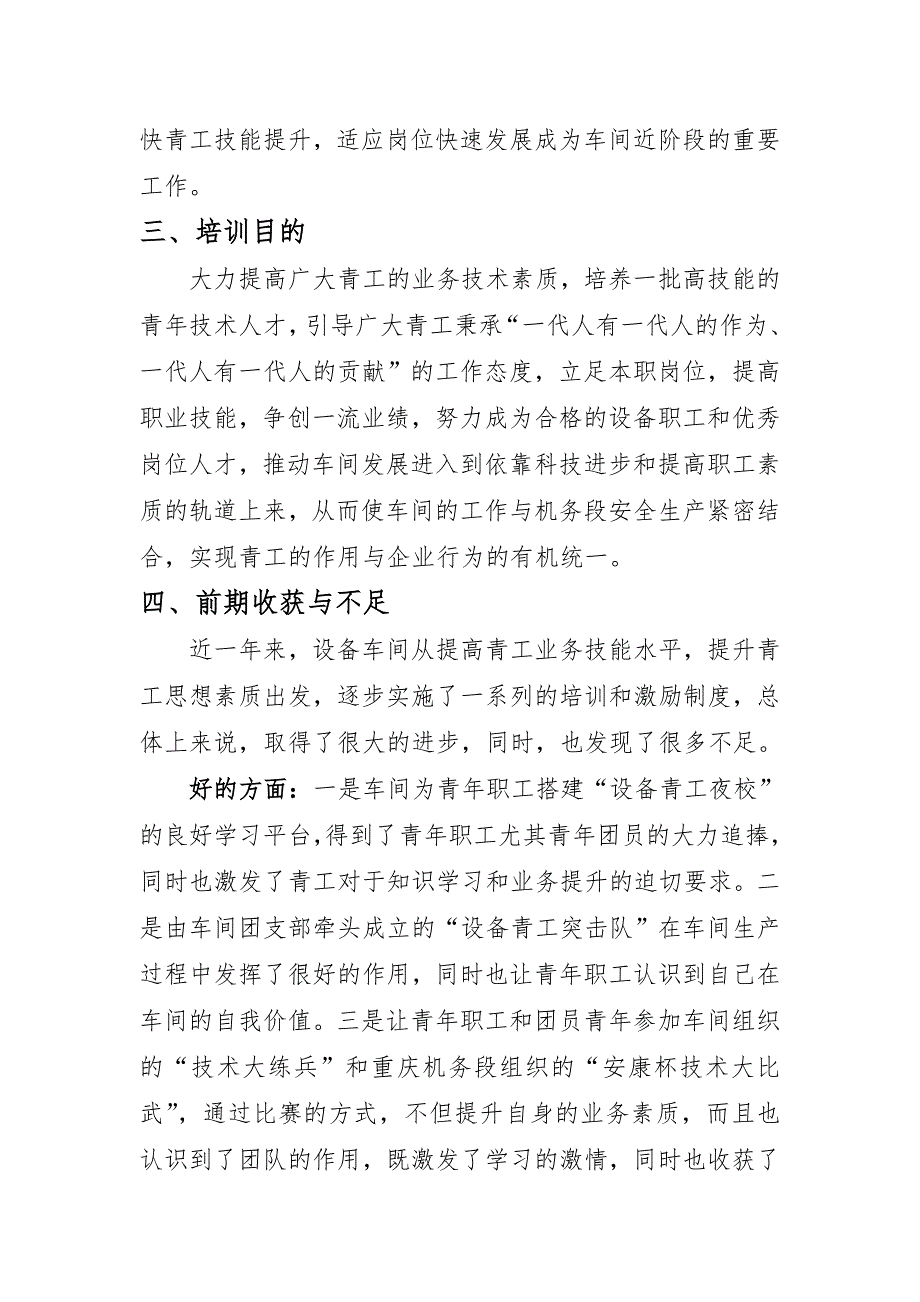 快青工技能提升，适应岗位快速发展成为车间近阶段的重要
工作。
三、培训目的
大力提高广大青工的业务技术素质，培养一批高技能的
青年技术人才，引导广大青工秉承“一代人有一代人的作为、
一代人有一代人的贡献”的工作态度，立足本职岗位，提高
职业技能，争创一流业绩，努力成为合格的设备职工和优秀
岗位人才，推动车间发展进入到依靠科技进步和提高职工素
质的轨道上来，从而使车间的工作与机务段安全生产紧密结
合，实现青工的作用与企业行为的有机统一。
四、前期收获与不足
近一年来，设备车间从提高青工业务技能水平，提升青
工思想素质出发，逐步实施了一系列的培训和激励制度，总
体上来说，取得了很大的进步，同时，也发现了很多不足。
好的方面：一是车间为青年职工搭建“设备青工夜校”
的良好学习平台，得到了青年职工尤其青年团员的大力追捧，
同时也激发了青工对于知识学习和业务提升的迫切要求。二
是由车间团支部牵头成立的“设备青工突击队”在车间生产
过程中发挥了很好的作用，同时也让青年职工认识到自己在
车间的自我价值。三是让青年职工和团员青年参加车间组织
的“技术大练兵”和重庆机务段组织的“安康杯技术大比
武”，通过比赛的方式，不但提升自身的业务素质，而且也
认识到了团队的作用，既激发了学习的激情，同时也收获了